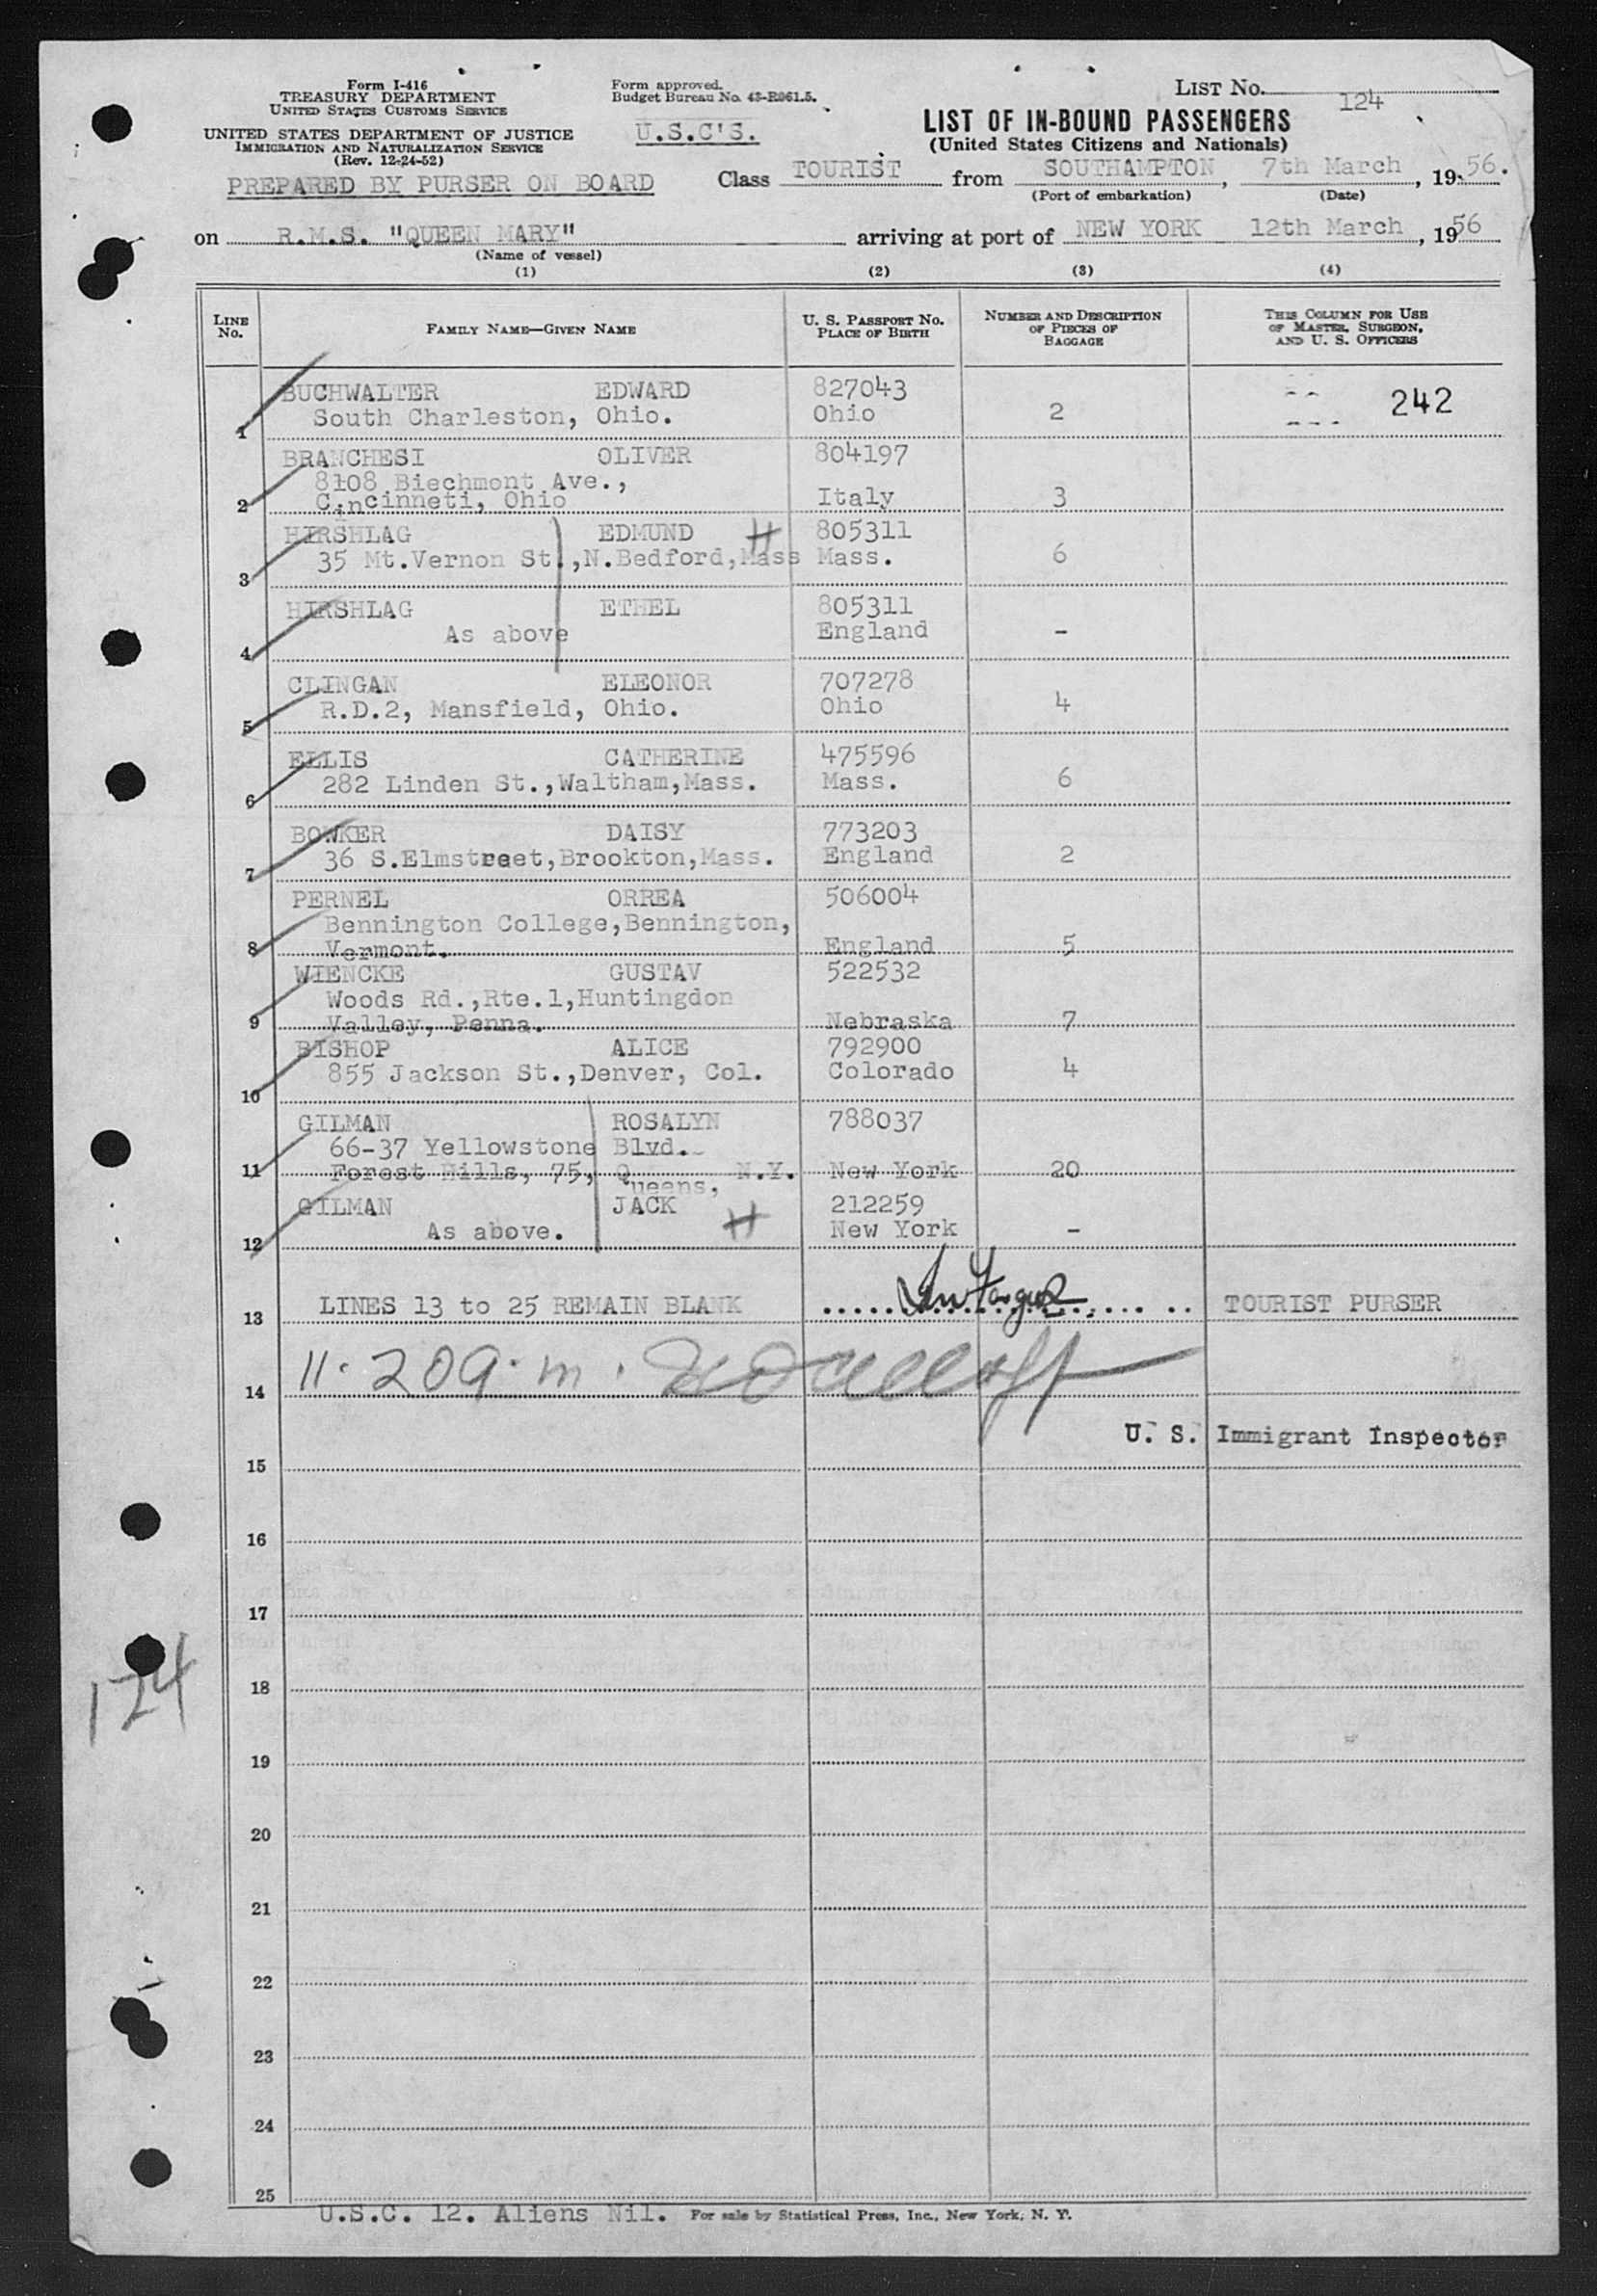 Form I-416
TREASURY DEPARTMENT
UNITED STATES CUSTOMS SERVICE
UNITED STATES DEPARTMENT OF JUSTICE
IMMIGRATION AND NATURALIZATION SERVICE
(Rev. 12-24-52)
PREPARED BY PURSER ON BOARD
Form approved.
Budget Bureau No. 43-R061.5.
U.S.C'S.
LIST No. 124
LIST OF IN-BOUND PASSENGERS
(United States Citizens and Nationals)
Class TOURIST from SOUTHAMPTON, 7th March, 1956.
(Port of embarkation) (Date)
on R.M.S. "QUEEN MARY" arriving at port of NEW YORK 12th March, 1956
(Name of vessel)
(1) (2) (3) (4)
LINE No. FAMILY NAME—GIVEN NAME U. S. PASSPORT No. PLACE OF BIRTH NUMBER AND DESCRIPTION OF PIECES OF BAGGAGE THIS COLUMN FOR USE OF MASTER, SURGEON, AND U. S. OFFICERS
BUCHWALTER EDWARD 827043
1 South Charleston, Ohio. Ohio 2 242
BRANCHESI OLIVER 804197
8108 Biechmont Ave.,
2 Cincinneti, Ohio Italy 3
HIRSHLAG EDMUND H 805311
3 35 Mt.Vernon St.,N.Bedford,Mass Mass. 6
HIRSHLAG ETHEL 805311
4 As above England -
CLINGAN ELEONOR 707278
5 R.D.2, Mansfield, Ohio. Ohio 4
ELLIS CATHERINE 475596
6 282 Linden St.,Waltham,Mass. Mass. 6
BOWKER DAISY 773203
7 36 S.Elmstreet,Brookton,Mass. England 2
PERNEL ORREA 506004
Bennington College,Bennington,
8 Vermont. England 5
WIENCKE GUSTAV 522532
Woods Rd.,Rte.1,Huntingdon
9 Valley, Penna. Nebraska 7
BISHOP ALICE 792900
10 855 Jackson St.,Denver, Col. Colorado 4
GILMAN ROSALYN 788037
66-37 Yellowstone Blvd.
11 Forest Hills, 75, Queens, N.Y. New York 20
GILMAN JACK 212259
12 As above. H New York -
13 LINES 13 to 25 REMAIN BLANK TOURIST PURSER
14 11.20 a.m.
U. S. Immigrant Inspector
15
16
17
124
18
19
20
21
22
23
24
25
U.S.C. 12. Aliens Nil. For sale by Statistical Press, Inc., New York, N. Y.